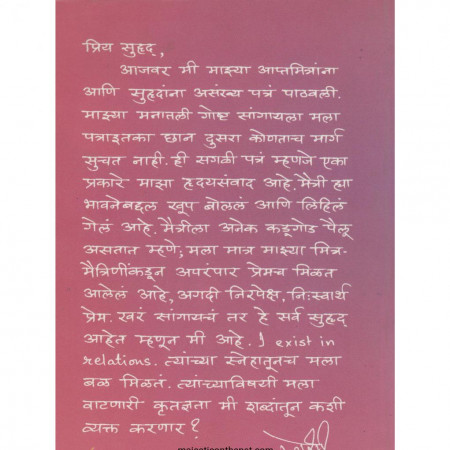 प्रिय सुहृद्,
आजवर मी माझ्या आप्तमित्रांना
आणि सुहृदांना असंख्य पत्रं पाठवली.
माझ्या मनातली गोष्ट सांगायला मला
पत्राइतका छान दुसरा कोणताच मार्ग
सुचत नाही. ही सगळी पत्रं म्हणजे एका
प्रकारे माझा हृदयसंवाद आहे. मैत्री ह्या
भावनेबद्दल खूप बोललं आणि लिहिलं
गेलं आहे. मैत्रीला अनेक कडूगोड पैलू
असतात म्हणे; मला मात्र माझ्या मित्र-
मैत्रिणींकडून अपरंपार प्रेमच मिळत
आलेलं आहे, अगदी निरपेक्ष, नि:स्वार्थ
प्रेम. खरं सांगायचं तर हे सर्व सुहृद्
आहेत म्हणून मी आहे. I exist in
relations. त्यांच्या स्नेहातूनच मला
बळ मिळतं. त्यांच्याविषयी मला
वाटणारी कृतज्ञता मी शब्दांतून कशी
व्यक्त करणार?